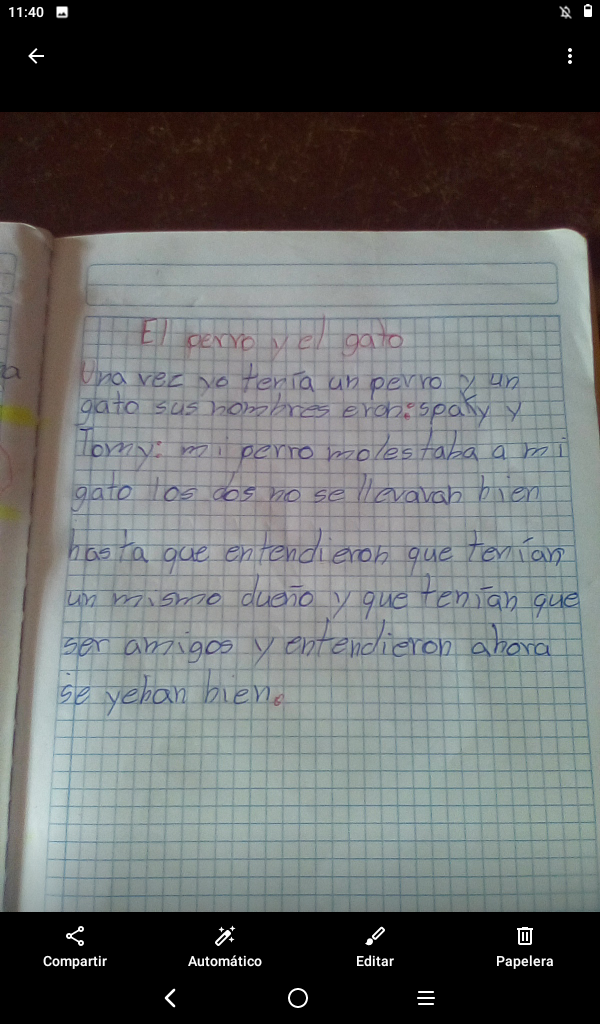 11:40
El perro y el gato
Una vez yo tenía un perro y un
gato sus nombres eran: spaky y
Tomy: mi perro molestaba a mi
gato los dos no se llevavan bien
hasta que entendieron que tenían
un mismo dueño y que tenían que
ser amigos y entendieron ahora
se yeban bien.
Compartir
Automático
Editar
Papelera